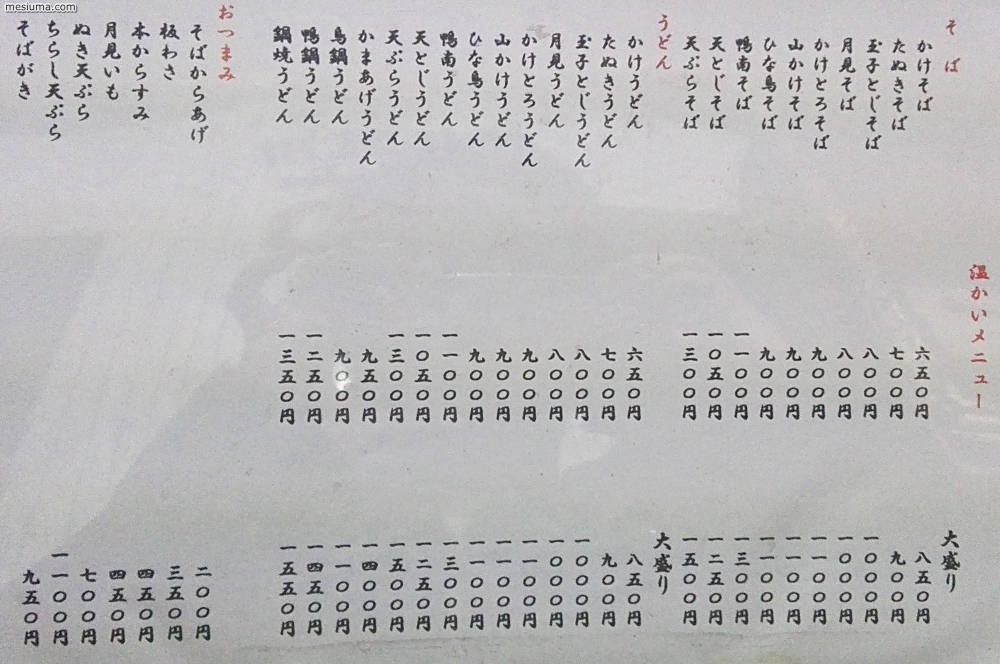 mesiuma.com
温かいメニュー
そば 大盛り
かけそば 六五〇円 八五〇円
たぬきそば 七〇〇円 九〇〇円
玉子とじそば 八〇〇円 一〇〇〇円
月見そば 八〇〇円 一〇〇〇円
かけとろそば 九〇〇円 一一〇〇円
山かけそば 九〇〇円 一一〇〇円
ひな鳥そば 九〇〇円 一一〇〇円
鴨南そば 一一〇〇円 一三〇〇円
天とじそば 一〇五〇円 一二五〇円
天ぷらそば 一三〇〇円 一五〇〇円
うどん 大盛り
かけうどん 六五〇円 八五〇円
たぬきうどん 七〇〇円 九〇〇円
玉子とじうどん 八〇〇円 一〇〇〇円
月見うどん 八〇〇円 一〇〇〇円
かけとろうどん 九〇〇円 一一〇〇円
山かけうどん 九〇〇円 一一〇〇円
ひな鳥うどん 九〇〇円 一一〇〇円
鴨南うどん 一一〇〇円 一三〇〇円
天とじうどん 一〇五〇円 一二五〇円
天ぷらうどん 一三〇〇円 一五〇〇円
かまあげうどん 九五〇円 一四〇〇円
鳥鍋うどん 九〇〇円 一一〇〇円
鴨鍋うどん 一二五〇円 一四五〇円
鍋焼うどん 一三五〇円 一五五〇円
おつまみ
そばからあげ 二〇〇円
板わさ 三五〇円
本からすみ 四五〇円
月見いも 四五〇円
ぬき天ぷら 七〇〇円
ちらし天ぷら 一一〇〇円
そばがき 九五〇円